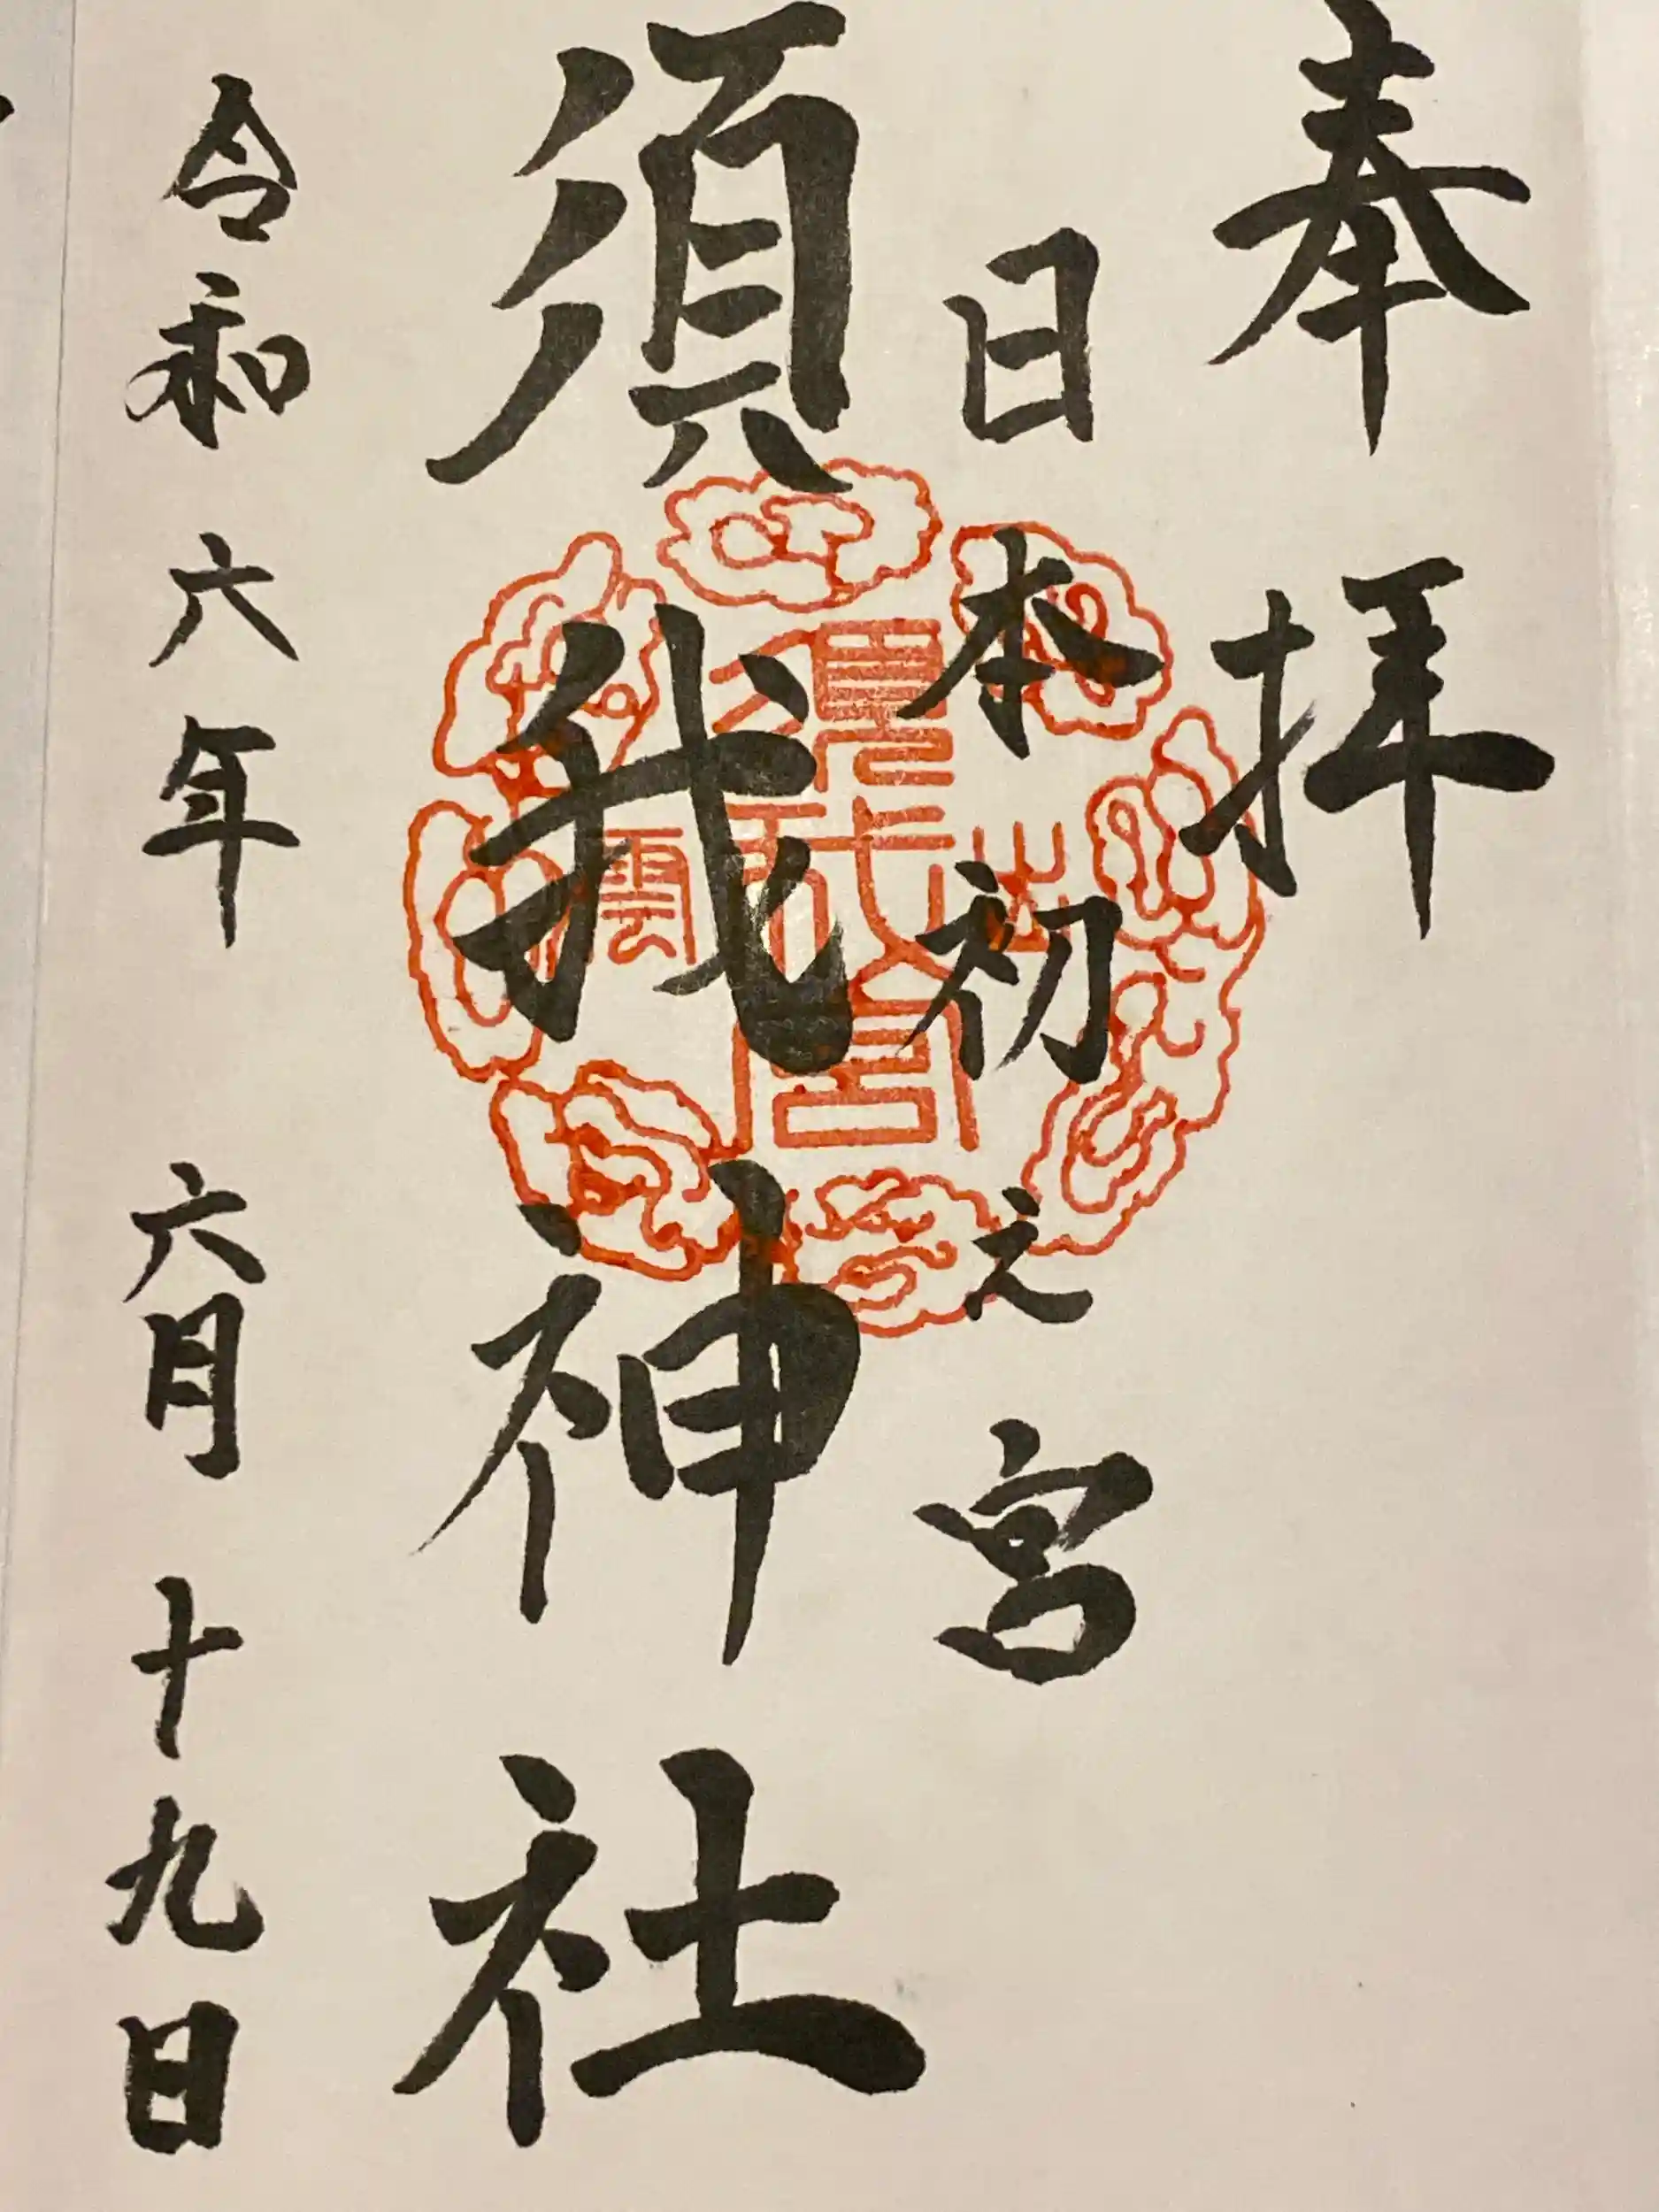 奉拝
日本初之宮
須我神社
須我宮
出雲
令和六年 六月十九日